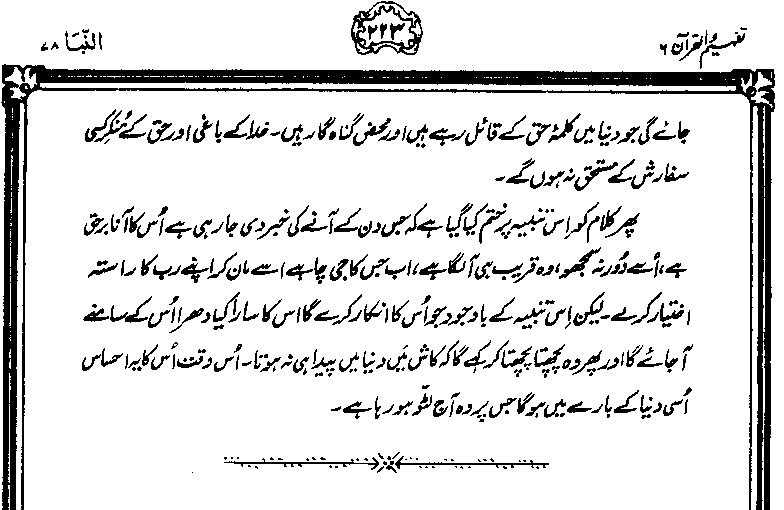 تفہیم القرآن ۶
۲۲۳
النّبا ۷۸
جائے گی جو دنیا میں کلمۂ حق کے قائل رہے ہیں اور محض گناہ گار ہیں۔ خدا کے باغی اور حق کے مُنکر کسی
سفارش کے مستحق نہ ہوں گے۔
پھر کلام کو اِس تنبیہ پر ختم کیا گیا ہے کہ جس دن کے آنے کی خبر دی جا رہی ہے اُس کا آنا برحق
ہے، اُسے دُور نہ سمجھو، وہ قریب ہی آ لگا ہے، اب جس کا جی چاہے اسے مان کر اپنے رب کا راستہ
اختیار کرے۔ لیکن اِس تنبیہ کے باوجود جو اُس کا انکار کرے گا اس کا سارا کیا دھرا اُس کے سامنے
آ جائے گا اور پھر وہ پچھتا پچھتا کر کہے گا کہ کاش میں دنیا میں پیدا ہی نہ ہوتا۔ اُس وقت اُس کا یہ احساس
اُسی دنیا کے بارے میں ہوگا جس پر وہ آج لٹّو ہو رہا ہے۔